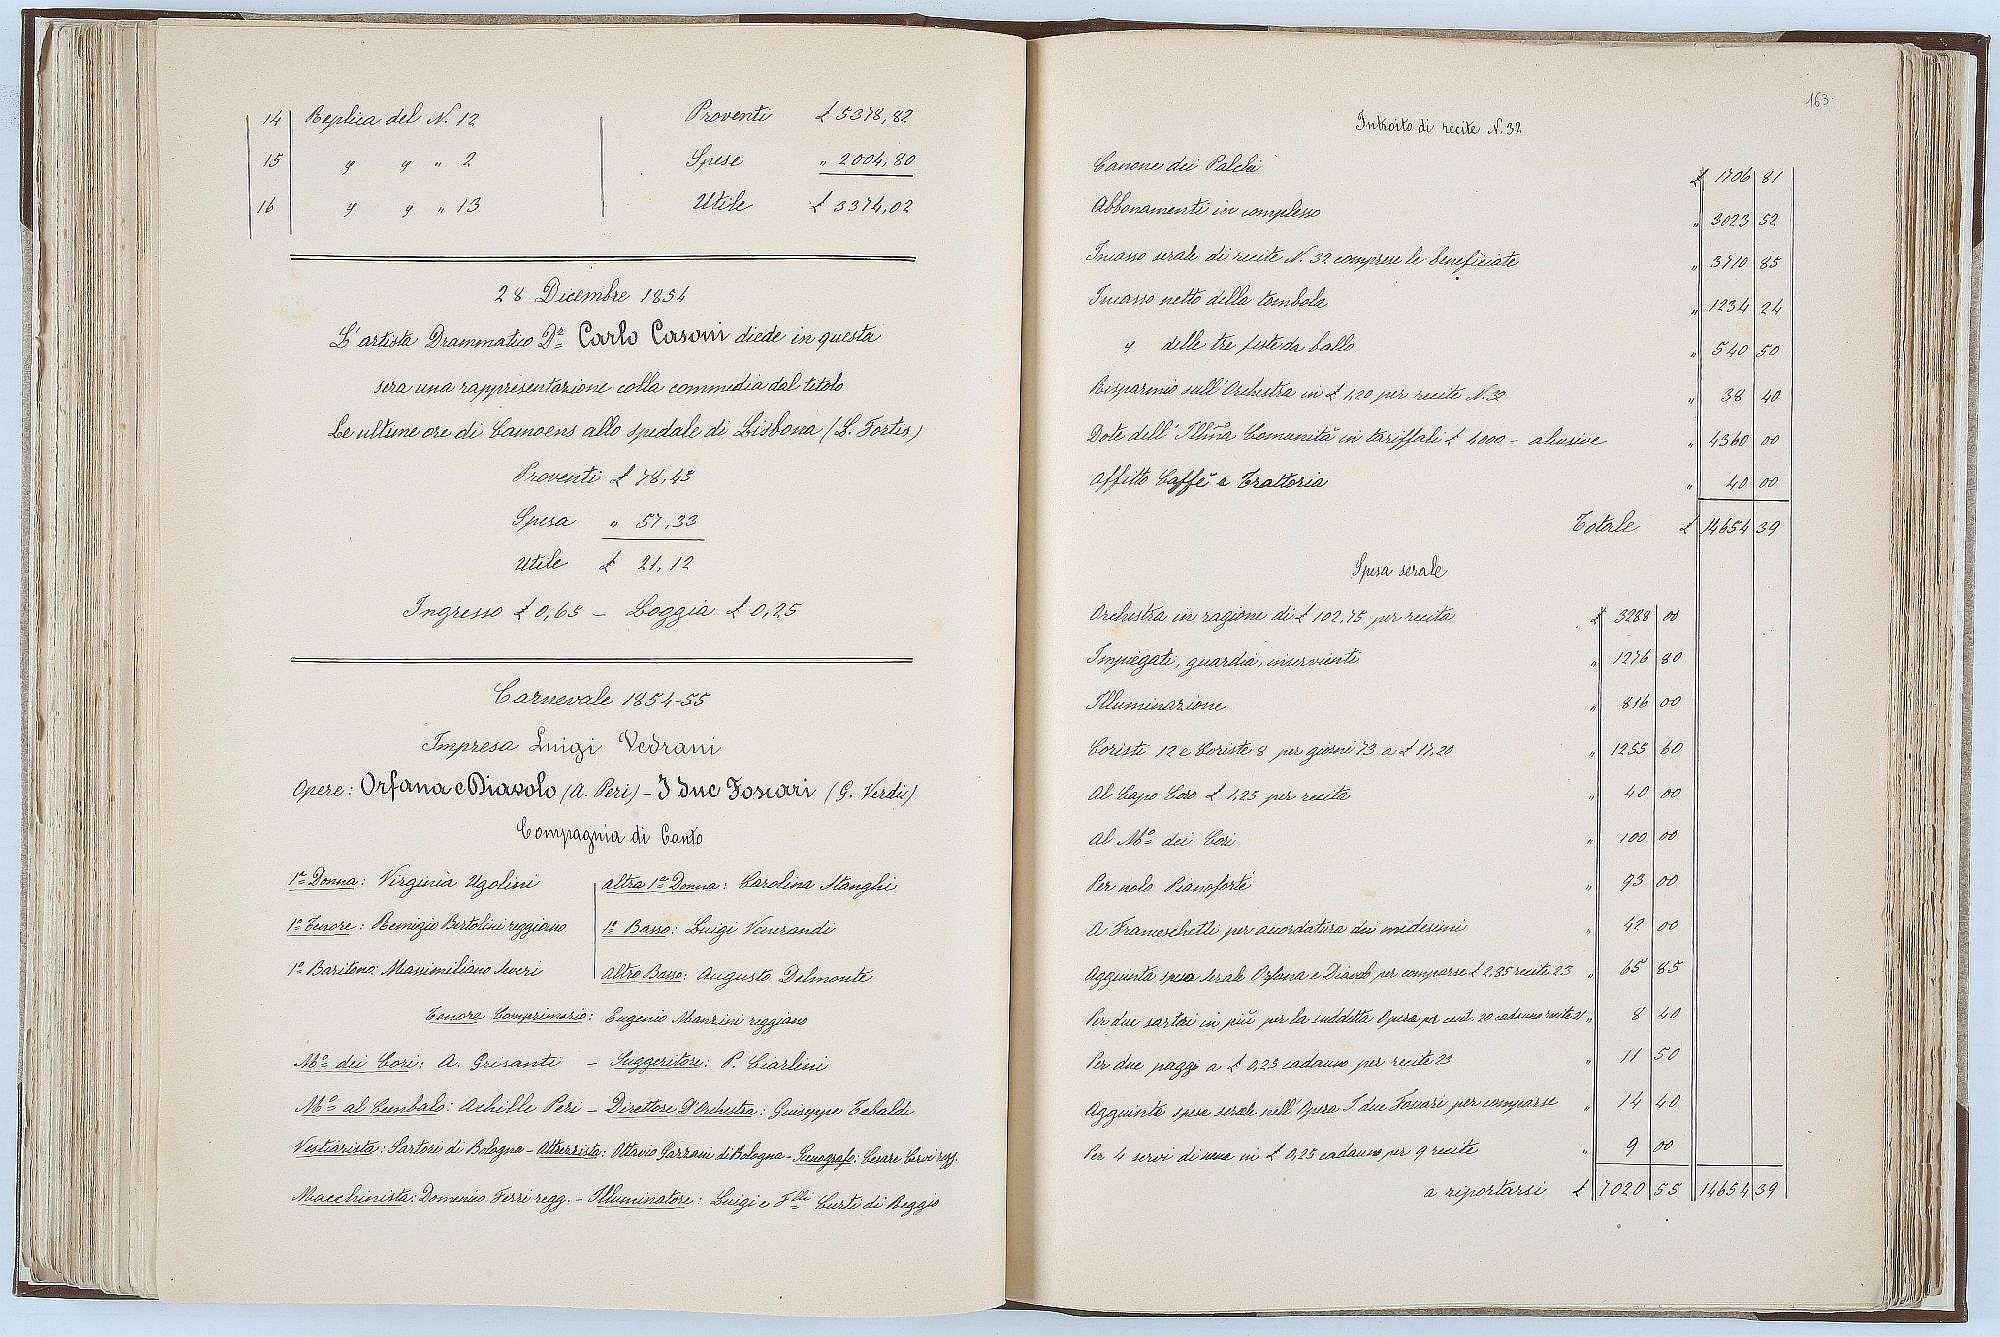 14 Replica del N. 12 Proventi £ 5378,82
15 " " " 2 Spese " 2004,80
16 " " " 13 Utile £ 3374,02
28 Dicembre 1854
L'artista Drammatico Dr. Carlo Casoni diede in questa
sera una rappresentazione colla commedia dal titolo
Le ultime ore di Camoens allo spedale di Lisbona (L. Fortis)
Proventi £ 78,43
Spesa " 57,33
Utile £ 21,12
Ingresso £ 0,65 – Loggia £ 0,25
Carnevale 1854-55
Impresa Luigi Vedrani
Opere: Orfana e Diavolo (A. Peri) – I due Foscari (G. Verdi)
Compagnia di Canto
1a Donna: Virginia Ugolini altra 1a Donna: Carolina Stanghi
1o Tenore: Remigio Bertolini reggiano 1o Basso: Luigi Venerandi
1o Baritono: Massimiliano Severi altro Basso: Augusto Delmonte
Tenore Comprimario: Eugenio Manzini reggiano
Mo dei Cori: A. Grisanti – Suggeritore: P. Ciarlini
Mo al Cembalo: Achille Peri – Direttore d'Orchestra: Giuseppe Tebaldi
Vestiarista: Sartori di Bologna – Attrezzista: Ottavio Gazzani di Bologna – Scenografo: Cesare Cervi regg.
Macchinista: Domenico Ferri regg. – Illuminatore: Luigi e Flli Curti di Reggio
163
Introito di recite N. 32
Canone dei Palchi £ 1706 81
Abbonamenti in complesso " 3023 52
Incasso serale di recite N. 32 comprese le beneficiate " 3710 85
Incasso netto della tombola " 1234 24
" delle tre feste da ballo " 540 50
Risparmio sull'Orchestra in £ 1,20 per recite N. 32 " 38 40
Dote dell'Illma Comunità in tariffali £ 4000 – abusive " 4360 00
Affitto Caffè e Trattoria " 40 00
Totale £ 14654 39
Spesa serale
Orchestra in ragione di £ 102,75 per recita £ 3288 00
Impiegati, guardia, inservienti " 1276 80
Illuminazione " 816 00
Coristi 12 e Coriste 8 per giorni 73 a £ 17,20 " 1255 60
Al Capo Coro £ 1,25 per recita " 40 00
Al Mo dei Cori " 100 00
Per nolo Pianoforte " 93 00
A Franceschetti per accordatura dei medesimi " 42 00
Aggiunta spesa serale Orfana e Diavolo per comparse £ 2,85 recite 23 " 65 85
Per due sartori in più per la suddetta Opera per cent. 20 cadauno recite 21 " 8 40
Per due paggi a £ 0,25 cadauno per recite 23 " 11 50
Aggiunta spesa serale nell'Opera I due Foscari per comparse " 14 40
Per 4 servi di in £ 0,25 cadauno per 9 recite " 9 00
a riportarsi £ 7020 55 14654 39